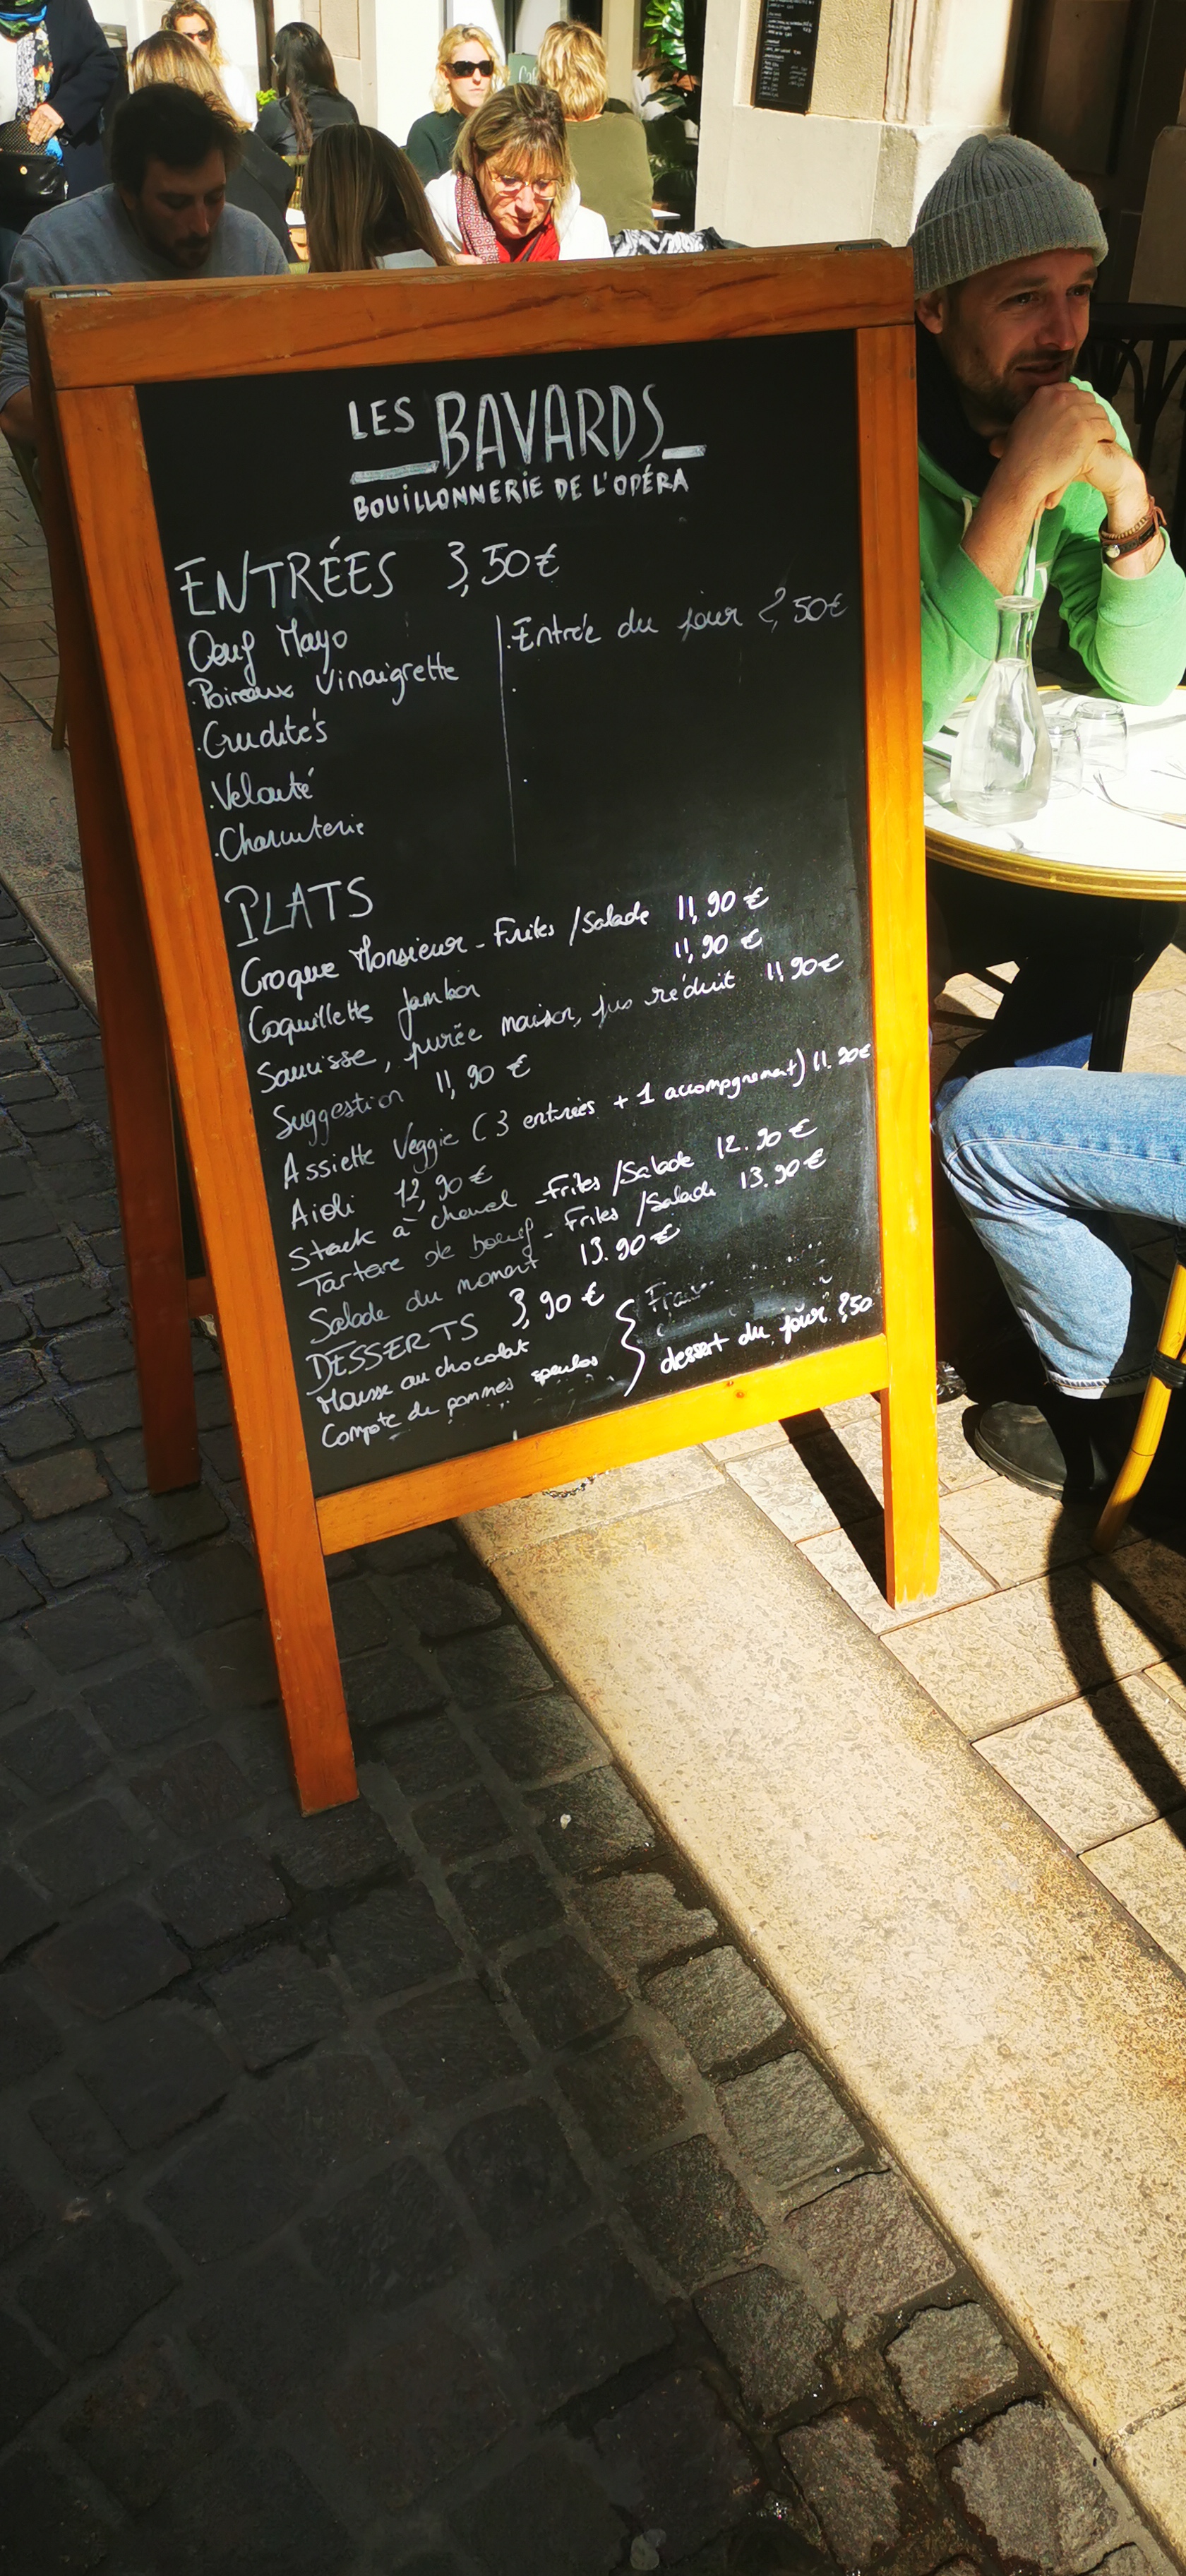 LES BAVARDS
BOUILLONNERIE DE L'OPÉRA
ENTRÉES 3,50€
Oeuf Mayo
.Poireaux Vinaigrette
.Crudités
.Velouté
.Charcuterie
.Entrée du jour 2,50€
PLATS
Croque Monsieur - Frites /Salade 11,90 €
Coquillettes Jambon 11,90 €
Saucisse, purée maison, jus réduit 11,90€
Suggestion 11,90 €
Assiette Veggie (3 entrées + 1 accompgnement) 11.90€
Aioli 12,90 €
Steak à cheval - Frites /Salade 12.90 €
Tartare de boeuf - Frites /Salade 13.90 €
Salade du moment 13.90 €
DESSERTS 3,90 €
Mousse au chocolat
Compote de pommes speculos
dessert du jour 2,50